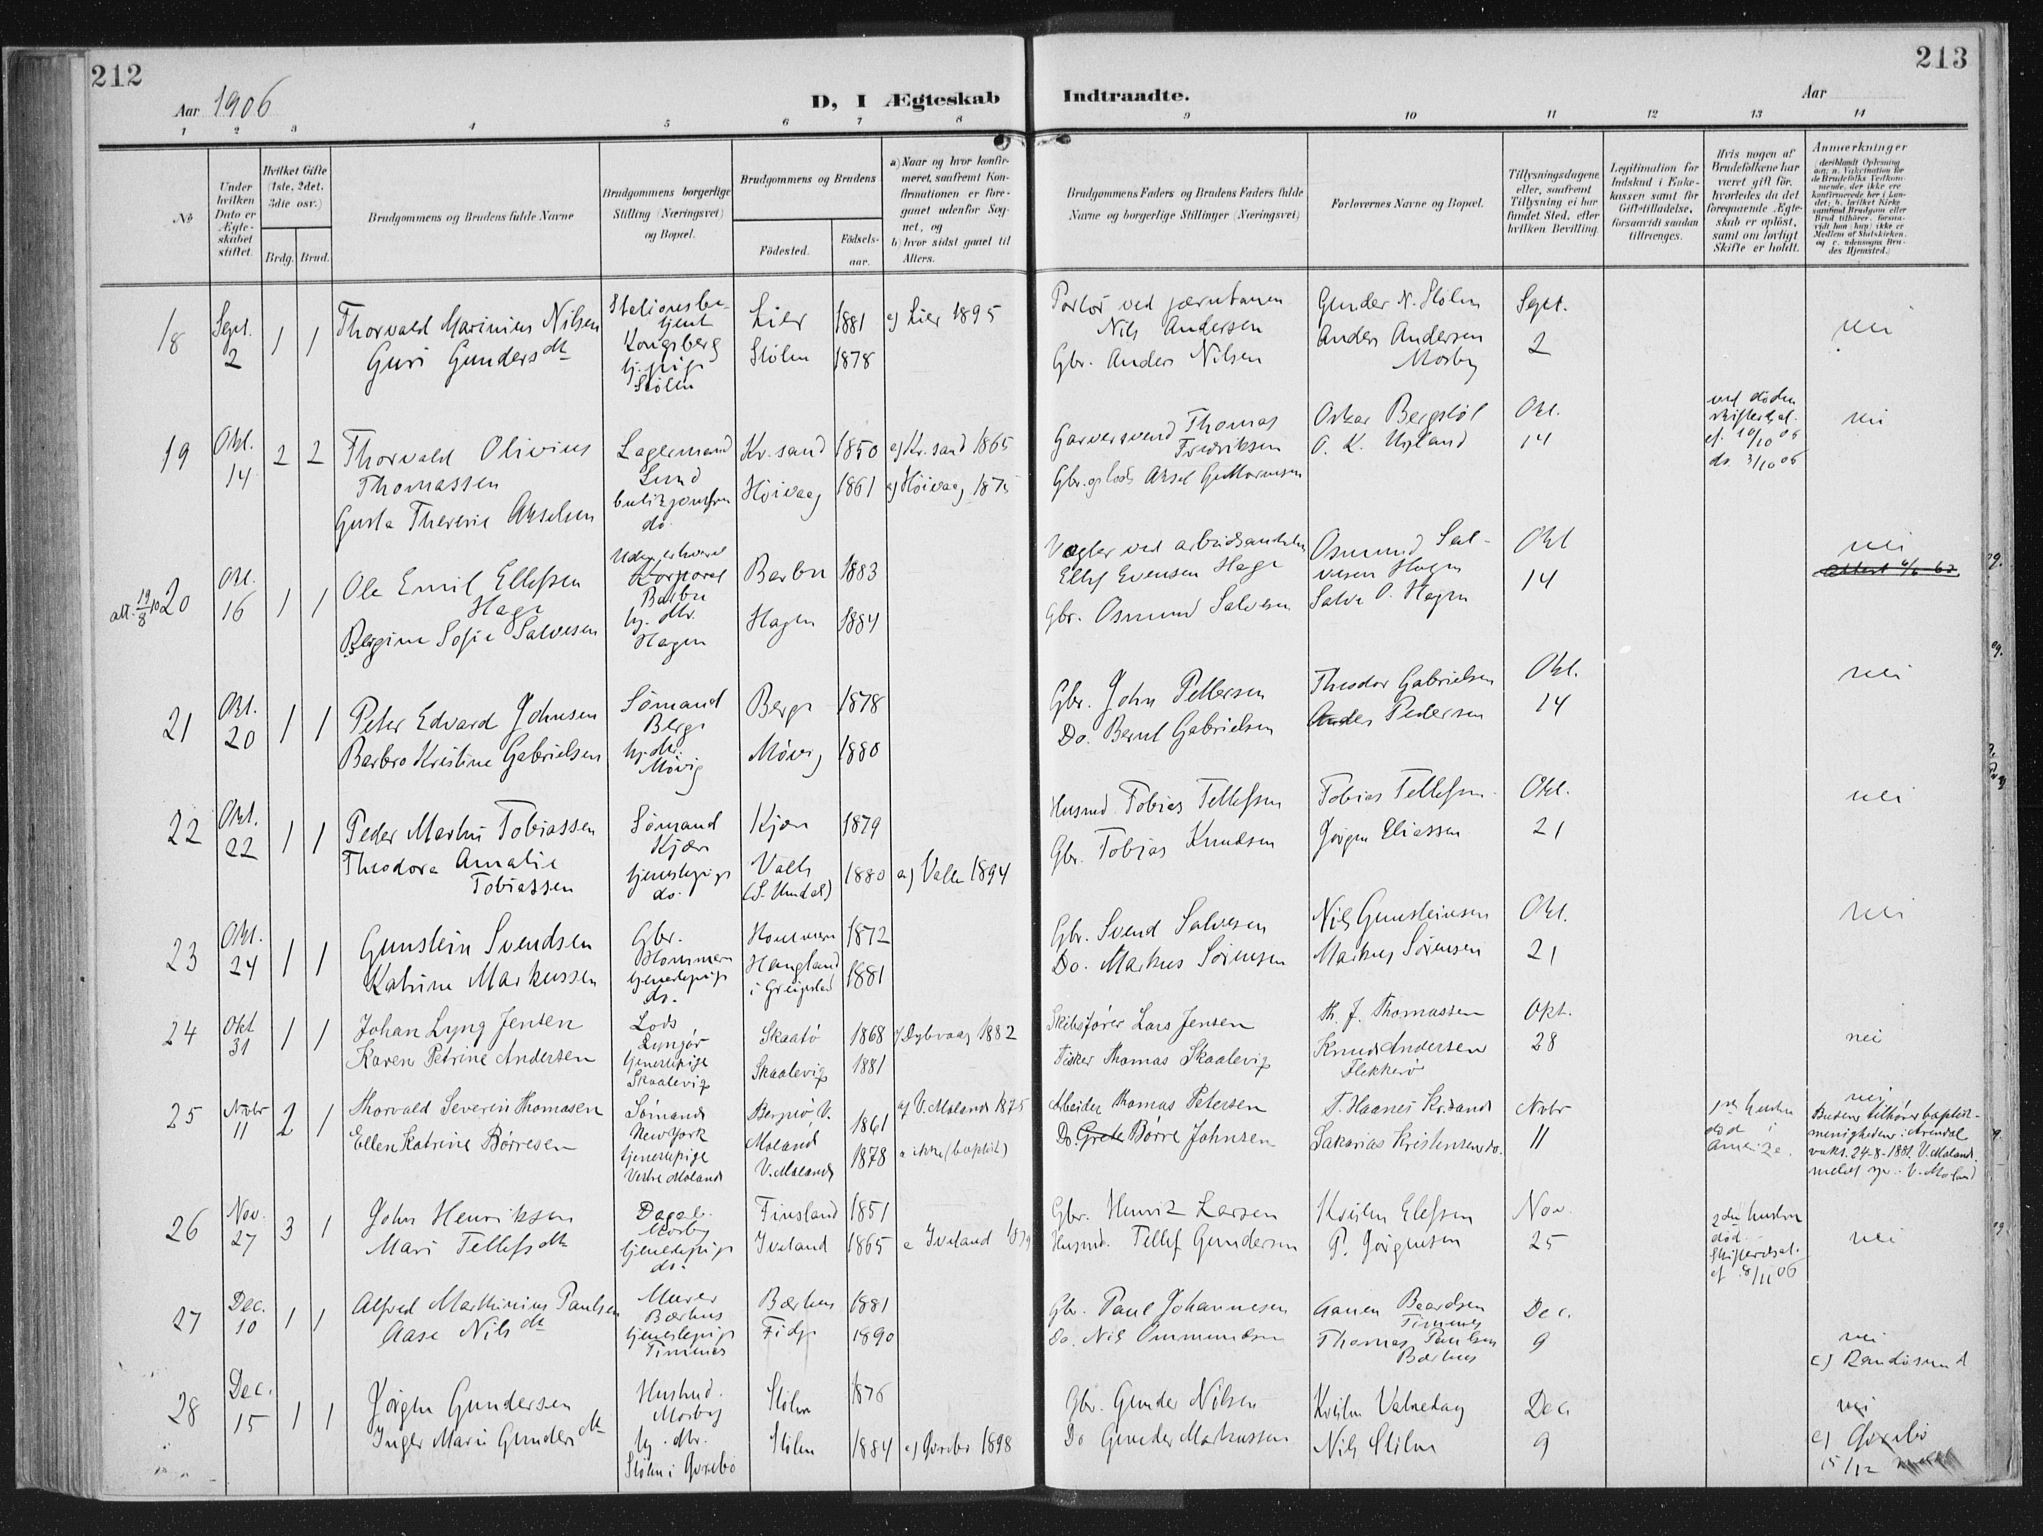 212
Aar 1906
D, I Ægteskab
Indtraadte.
Aar
213
1 2 3 4 5 6 7 8 9 10 11 12 13 14
No
Under hvilken Dato er Ægteskabet stiftet.
Hvilket Gifte (1ste, 2det, 3die osv.)
Brdg. Brud.
Brudgommens og Brudens fulde Navne
Brudgommens borgerlige Stilling (Næringsvei) og Bopæl.
Brudgommens og Brudens
Fødested.
Fødsels-aar.
a) Naar og hvor konfirmeret, saafremt Konfirmationen er foregaaet udenfor Sognet, og
b) hvor sidst gaaet til Alters.
Brudgommens Faders og Brudens Faders fulde Navne og borgerlige Stillinger (Næringsvei)
Forlovernes Navne og Bopæl.
Tillysningsdagene eller, saafremt Tillysning ei har fundet Sted, efter hvilken Bevilling.
Legitimation for Indskud i Enkekassen samt for Giftetilladelse, forsaavidt saadan tiltrænges.
Hvis nogen af Brudefolkene har været gift før, hvorledes da det foregaaende Ægteskab er opløst, samt om lovligt Skifte er holdt.
Anmærkninger
18 Sept. 2 1 1 Thorvald Marinius Nilsen
Guri Gundersdtr
Stationsbetjent Kongsberg
Stølen
Lier 1881 a) Lier 1895
Stølen 1878
Portør ved jærnbanen Nils Andersen
Gbr. Anders Nilsen
Gunder N. Stølen
Anders Andersen Mosby
Sept. 2
nei
19 Okt. 14 2 2 Thorvald Olivius Thomassen
Gusta Theresie Akselsen
Lagermand Lund
butikjomfru do.
Kr.sand 1850 a) Kr.sand 1865
Høivaag 1861 a) Høivaag 1875
Garversvend Thomas Fredriksen
Gbr. og lods Aksel Guttormsen
Oskar Bergstøl
O. K. Ugland
Okt. 14
ved døden
skifteattest.
af 10/10 06
do. 3/10 06
nei
att. 19/8 10
20 Okt. 16 1 1 Ole Emil Ellefsen Hage
Bergine Sofie Salvesen
Korporal Barbu
hj. dtr. Hagen
Barbu 1883
Hagen 1884
Vægter ved arbeidsanstalten Ellef Evensen Hage
Gbr. Osmund Salvesen
Osmund Salvesen Hagen
Salve O. Hagen
Okt 14
nei
21 Okt. 20 1 1 Peter Edvard Johnsen
Barbro Kristine Gabrielsen
Sømand Berge
hj. dtr. Møvig
Berge 1878
Møvig 1880
Gbr. John Pettersen
Do. Bernt Gabrielsen
Theodor Gabrielsen
Anders Pedersen
Okt. 14
nei
22 Okt. 22 1 1 Peder Martin Tobiassen
Theodora Amalie Tobiassen
Sømand Kjær
tjenestepige do.
Kjær 1879
Valle (S. Undal) 1880 a) Valle 1894
Husmd Tobias Tellefsen
Gbr. Tobias Knudsen
Tobias Tellefsen
Jørgen Eliassen
Okt. 21
nei
23 Okt. 24 1 1 Gunstein Svendsen
Katrine Markussen
Gbr. Hommeren
tjenestepige do.
Hommeren 1872
Haugland i Greipstad 1881
Gbr. Svend Salvesen
Do. Markus Sørensen
Nils Gunsteinsen
Markus Sørensen
Okt. 21
nei
24 Okt 31 1 1 Johan Lyng Jensen
Karen Petrine Andersen
Lods Lyngør
tjenestepige Skaalevig
Skaatø 1868 a) Dybvaag 1882
Skaalevig 1881
Skibsfører Lars Jensen
Fisker Thomas Skaalevig
Th. J. Thomassen
Knud Andersen Flekkerø
Okt. 28
nei
25 Novbr 11 2 1 Thorvald Severin Thomasen
Ellen Katrine Børresen
Sømand New York
tjenestepige Vestre Moland
V. Moland 1861 a) V. Moland 1875
V. Moland 1878 a ikke (baptist)
Arbeider Thomas Petersen
Do. Børre Johnsen
T. Haanes Kr.sand
Sakarias Kristensen do.
Novbr 11
død i Amerika.
nei
Bruden tilhører baptistmenigheden i Arendal
vaks. 24-8-1881. V. Moland.
V. Moland
26 Nov. 27 3 1 John Henriksen
Mari Tellefsdtr
Dagarb. Mosby
tjenestepige do.
Finsland 1851
Iveland 1865 a Iveland 1879
Gbr. Henrik Larsen
Husmd. Tellef Gundersen
Kristen Elefsen
P. Jørgensen
Nov. 25
2den hustru død.
Skifteattest.
af 8/11 06
nei
27 Dec. 10 1 1 Alfred Marthinius Paulsen
Aase Nilsdtr
Murer Bærhus
tjenestepige Timenes
Bærhus 1881
Fidje 1890
Gbr. Paul Johannesen
Do. Nils Ommundsen
Aanen Baardsen Timenes
Thomas Paulsen Bærhus
Dec. 9
nei
c) Randøsund
28 Dec. 15 1 1 Jørgen Gundersen
Inger Marie Gundersdtr
Husmd. Mosby
hj. dtr. Stølen i Øvrebø
Stølen 1876
Stølen 1884 a) Øvrebø 1898
Gbr. Gunder Nilsen
Do Gunder Markussen
Kristen Valnedag
Nils Stølen
Dec. 9
nei
c) Øvrebø
15/12